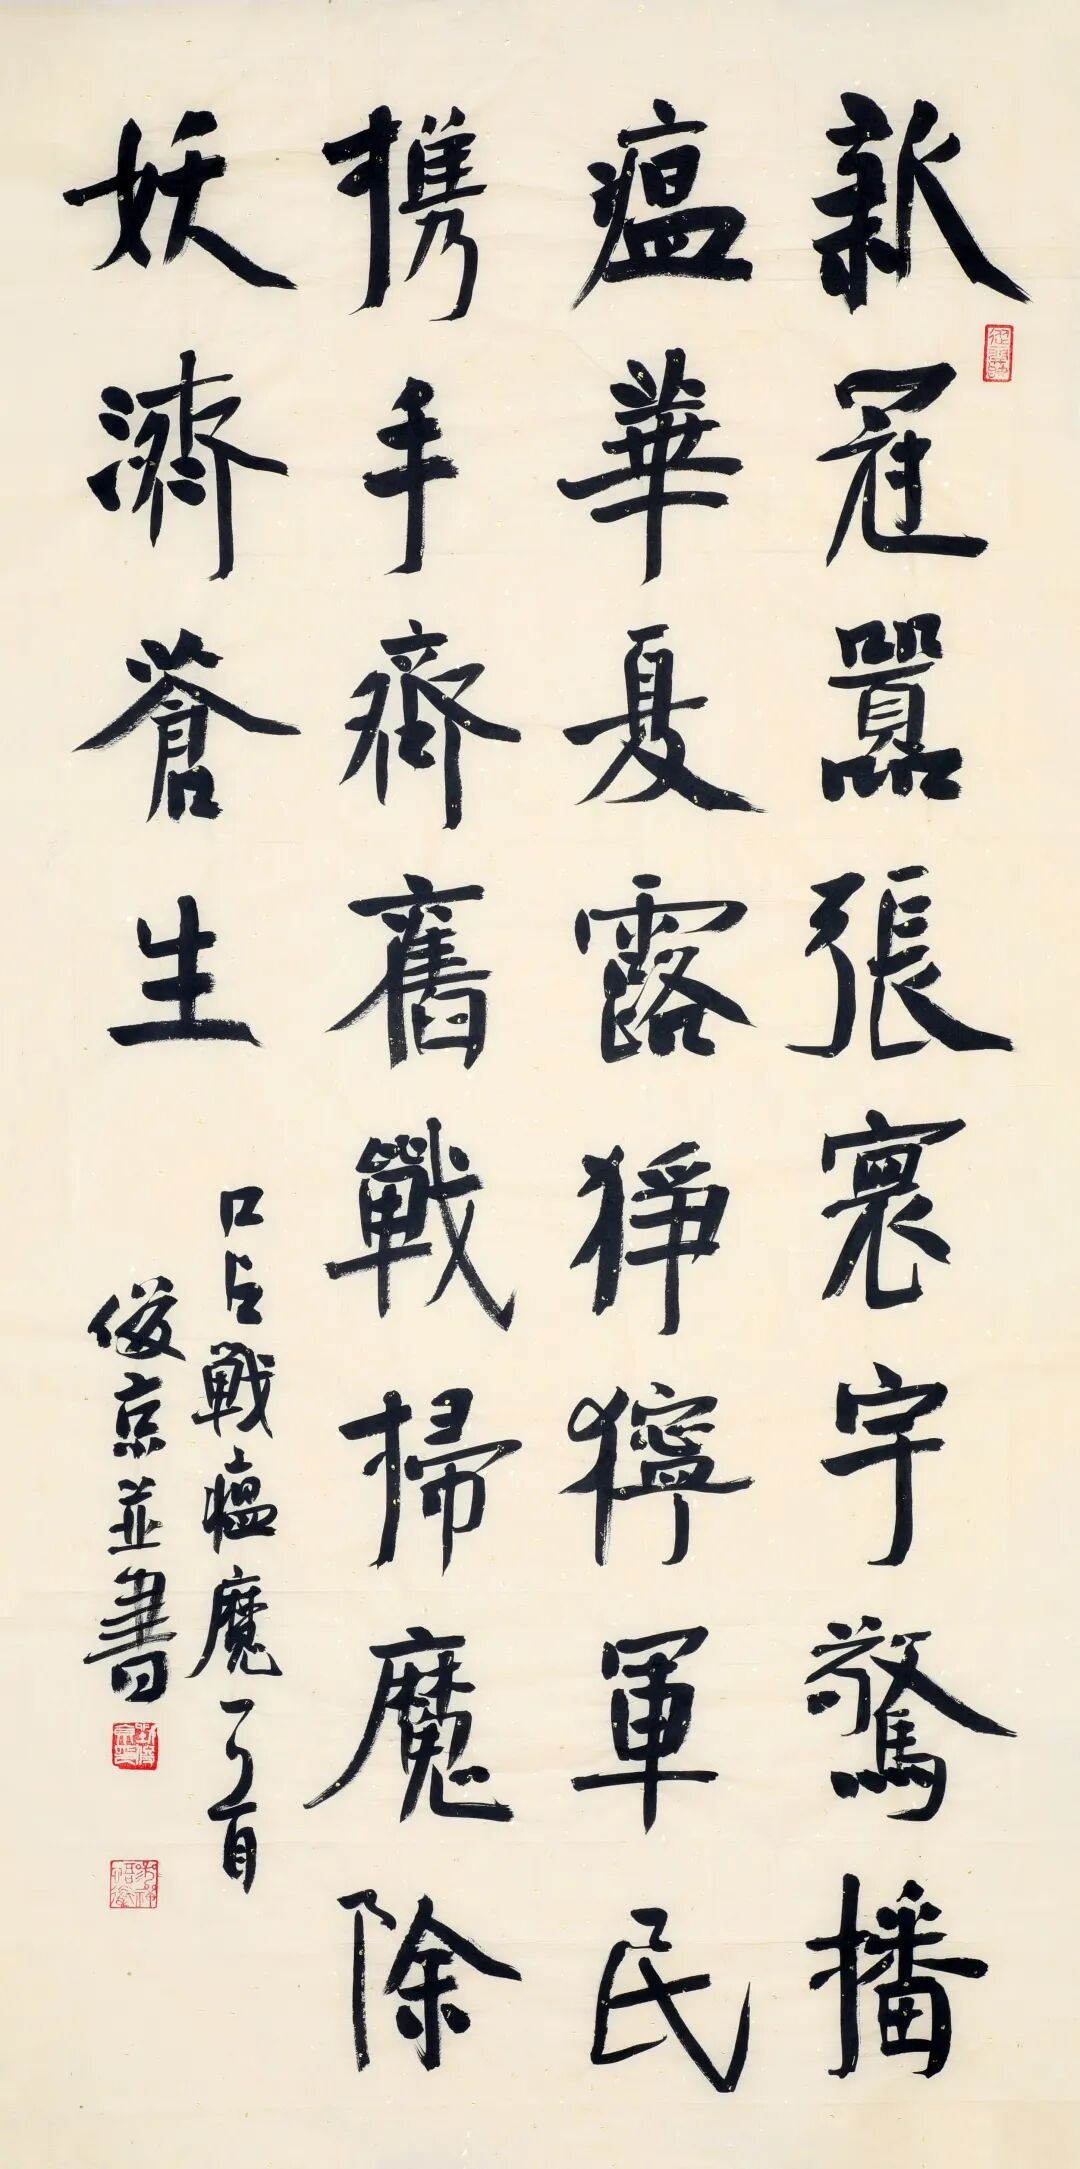 新冠囂張寰宇驚播
瘟華夏露猙獰軍民
携手齊奮戰掃魔除
妖濟蒼生
口占戰瘟魔一首
俊京並書